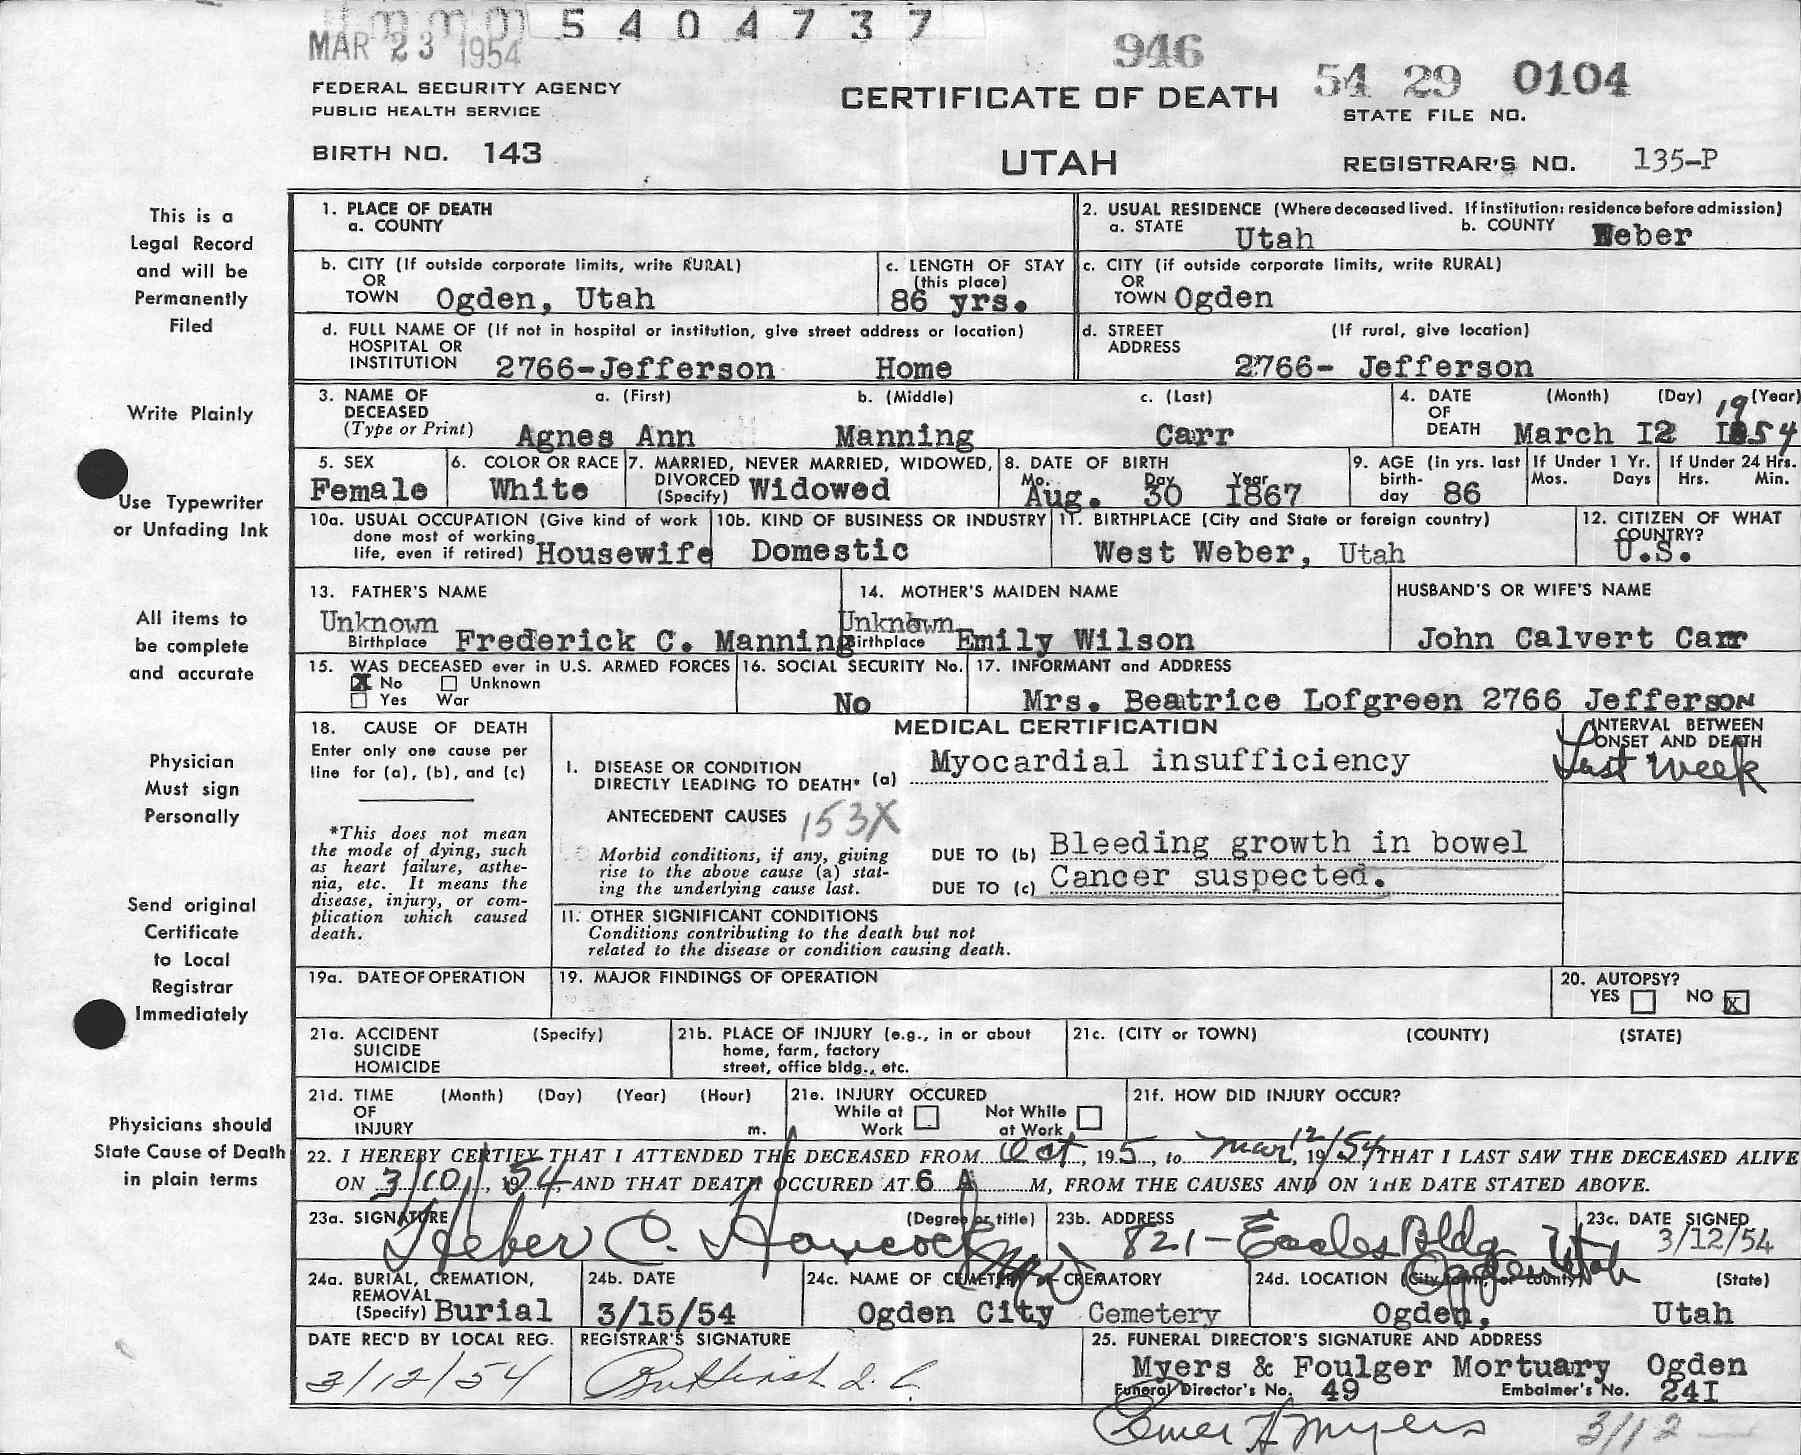 5404737
MAR 23 1954
946
54 29 0104
FEDERAL SECURITY AGENCY
PUBLIC HEALTH SERVICE
CERTIFICATE OF DEATH
STATE FILE NO.
BIRTH NO. 143
UTAH
REGISTRAR'S NO. 135-P
This is a
Legal Record
and will be
Permanently
Filed
Write Plainly
Use Typewriter
or Unfading Ink
All items to
be complete
and accurate
Physician
Must sign
Personally
Send original
Certificate
to Local
Registrar
Immediately
Physicians should
State Cause of Death
in plain terms
1. PLACE OF DEATH
a. COUNTY
2. USUAL RESIDENCE (Where deceased lived. If institution: residence before admission)
a. STATE Utah b. COUNTY Weber
b. CITY (If outside corporate limits, write RURAL)
OR
TOWN Ogden, Utah
c. LENGTH OF STAY
(this place)
86 yrs.
c. CITY (if outside corporate limits, write RURAL)
OR
TOWN Ogden
d. FULL NAME OF (If not in hospital or institution, give street address or location)
HOSPITAL OR
INSTITUTION 2766-Jefferson Home
d. STREET (If rural, give location)
ADDRESS
2766- Jefferson
3. NAME OF a. (First) b. (Middle) c. (Last)
DECEASED
(Type or Print) Agnes Ann Manning Carr
4. DATE (Month) (Day) (Year)
OF 19
DEATH March I2 1854
5. SEX
Female
6. COLOR OR RACE
White
7. MARRIED, NEVER MARRIED, WIDOWED,
DIVORCED
(Specify) Widowed
8. DATE OF BIRTH
Mo. Day Year
Aug. 30 1867
9. AGE (in yrs. last
birth-
day 86
If Under 1 Yr.
Mos. Days
If Under 24 Hrs.
Hrs. Min.
10a. USUAL OCCUPATION (Give kind of work
done most of working
life, even if retired) Housewife
10b. KIND OF BUSINESS OR INDUSTRY
Domestic
11. BIRTHPLACE (City and State or foreign country)
West Weber, Utah
12. CITIZEN OF WHAT
COUNTRY?
U.S.
13. FATHER'S NAME
Unknown
Birthplace Frederick C. Manning
14. MOTHER'S MAIDEN NAME
Unknown
Birthplace Emily Wilson
HUSBAND'S OR WIFE'S NAME
John Calvert Carr
15. WAS DECEASED ever in U.S. ARMED FORCES
X No Unknown
Yes War
16. SOCIAL SECURITY No.
No
17. INFORMANT and ADDRESS
Mrs. Beatrice Lofgreen 2766 Jefferson
18. CAUSE OF DEATH
Enter only one cause per
line for (a), (b), and (c)
*This does not mean
the mode of dying, such
as heart failure, asthe-
nia, etc. It means the
disease, injury, or com-
plication which caused
death.
MEDICAL CERTIFICATION
INTERVAL BETWEEN
ONSET AND DEATH
Last Week
I. DISEASE OR CONDITION
DIRECTLY LEADING TO DEATH* (a) Myocardial insufficiency
ANTECEDENT CAUSES 153X
Morbid conditions, if any, giving
rise to the above cause (a) stat-
ing the underlying cause last.
DUE TO (b) Bleeding growth in bowel
DUE TO (c) Cancer suspected.
II. OTHER SIGNIFICANT CONDITIONS
Conditions contributing to the death but not
related to the disease or condition causing death.
19a. DATE OF OPERATION
19. MAJOR FINDINGS OF OPERATION
20. AUTOPSY?
YES NO X
21a. ACCIDENT (Specify)
SUICIDE
HOMICIDE
21b. PLACE OF INJURY (e.g., in or about
home, farm, factory
street, office bldg., etc.
21c. (CITY or TOWN) (COUNTY) (STATE)
21d. TIME (Month) (Day) (Year) (Hour)
OF
INJURY m.
21e. INJURY OCCURED
While at Work
Not While at Work
21f. HOW DID INJURY OCCUR?
22. I HEREBY CERTIFY THAT I ATTENDED THE DECEASED FROM Oct, 195, to Mar 12, 19/54 THAT I LAST SAW THE DECEASED ALIVE
ON 3/10/, 1954, AND THAT DEATH OCCURED AT 6 A M, FROM THE CAUSES AND ON THE DATE STATED ABOVE.
23a. SIGNATURE (Degree or title)
Heber C. Hancock MD
23b. ADDRESS
821-Eccles Bldg
Ogden Utah
23c. DATE SIGNED
3/12/54
24a. BURIAL, CREMATION,
REMOVAL
(Specify) Burial
24b. DATE
3/15/54
24c. NAME OF CEMETERY or CREMATORY
Ogden City Cemetery
24d. LOCATION (City, town, or county) (State)
Ogden, Utah
DATE REC'D BY LOCAL REG.
3/12/54
REGISTRAR'S SIGNATURE
25. FUNERAL DIRECTOR'S SIGNATURE AND ADDRESS
Myers & Foulger Mortuary Ogden
Funeral Director's No. 49 Embalmer's No. 24I
Elmer A Myers
3/12